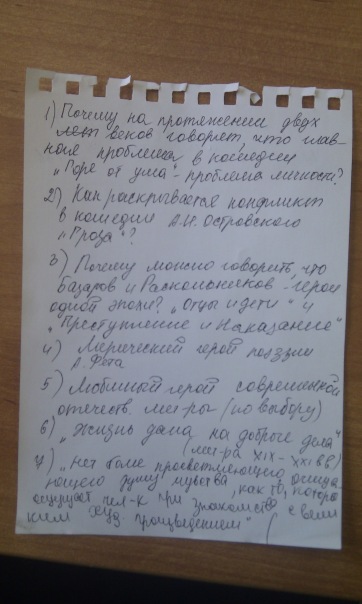 1) Почему на протяжении двух
лет веков говорят, что глав-
ная проблема в комедии
„Горе от ума" - проблема личности?
2) Как раскрывается конфликт
в комедии А.Н. Островского
„Гроза"?
3) Почему можно говорить, что
Базаров и Раскольников - герои
одной эпохи? „Отцы и дети" и
„Преступление и Наказание"
4) Лирический герой поэзии
А. Фета
5) Любимый герой современной
отечеств. лит-ры (по выбору)
6) „Жизнь дана на добрые дела"
(лит-ра XIX - XXI вв)
7) „Нет более просветляющего, очища-
ющего душу чувства, как то, которое
ощущает чел-к при знакомстве с вели
ким худ. произведением"